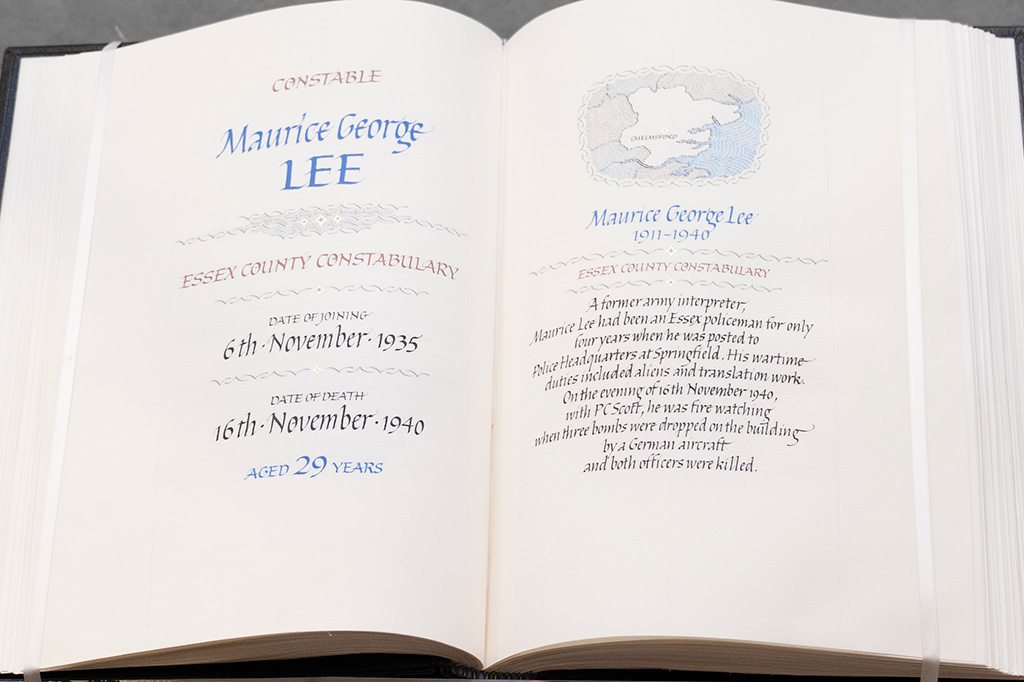 CONSTABLE
Maurice George
LEE
ESSEX COUNTY CONSTABULARY
DATE OF JOINING
6th · November · 1935
DATE OF DEATH
16th · November · 1940
AGED 29 YEARS
CHELMSFORD
Maurice George Lee
1911–1940
ESSEX COUNTY CONSTABULARY
A former army interpreter,
Maurice Lee had been an Essex policeman for only
four years when he was posted to
Police Headquarters at Springfield. His wartime
duties included aliens and translation work.
On the evening of 16th November 1940,
with PC Scott, he was fire watching
when three bombs were dropped on the building
by a German aircraft
and both officers were killed.